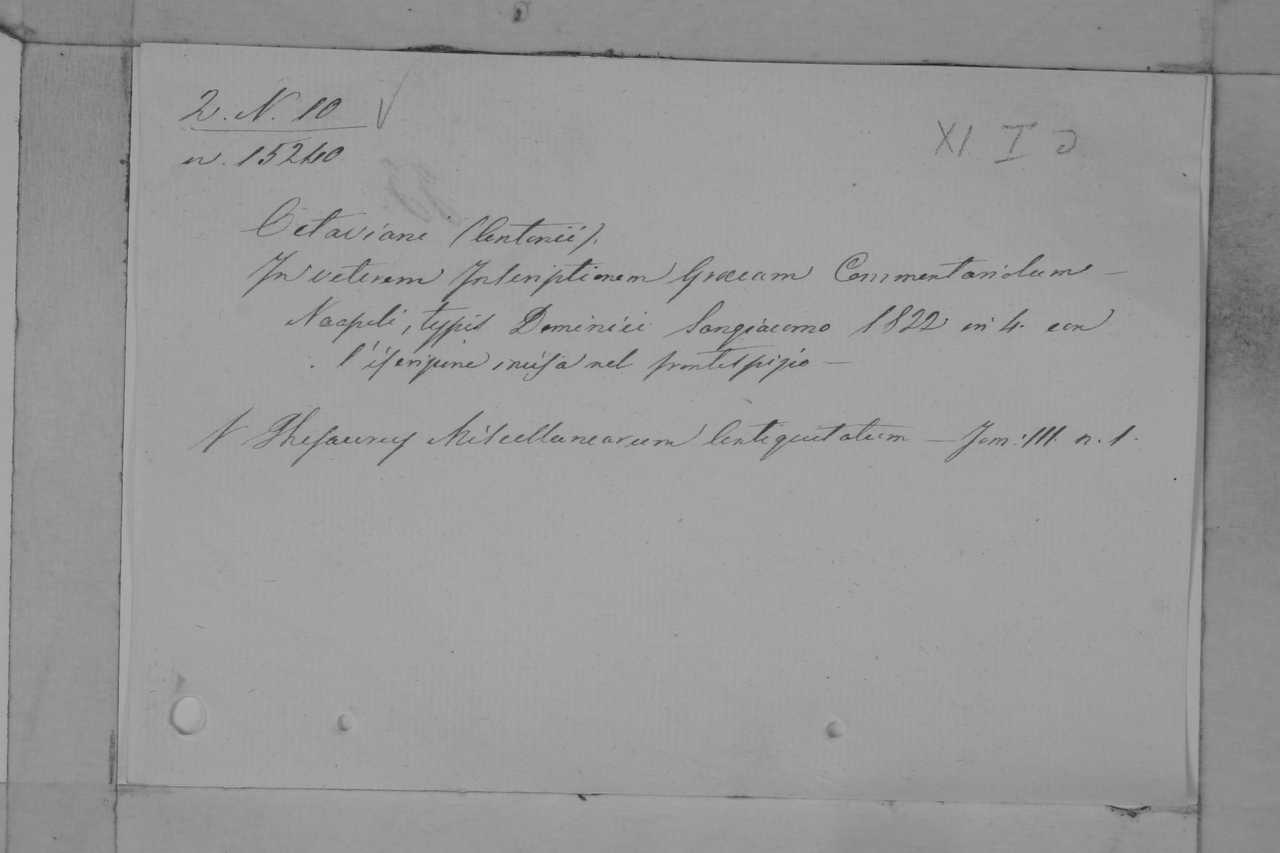 2. N. 10
n. 15240
XI I
Octaviani (Antonii).
In veterem Inscriptionem Græcam Commentariolum —
Neapoli, typis Dominici Sangiacomo 1822 in 4. con
l'iscrizione incisa nel frontespizio —
Thesaurus Miscellanearum Antiquitatum — Tom: III. n. 1.